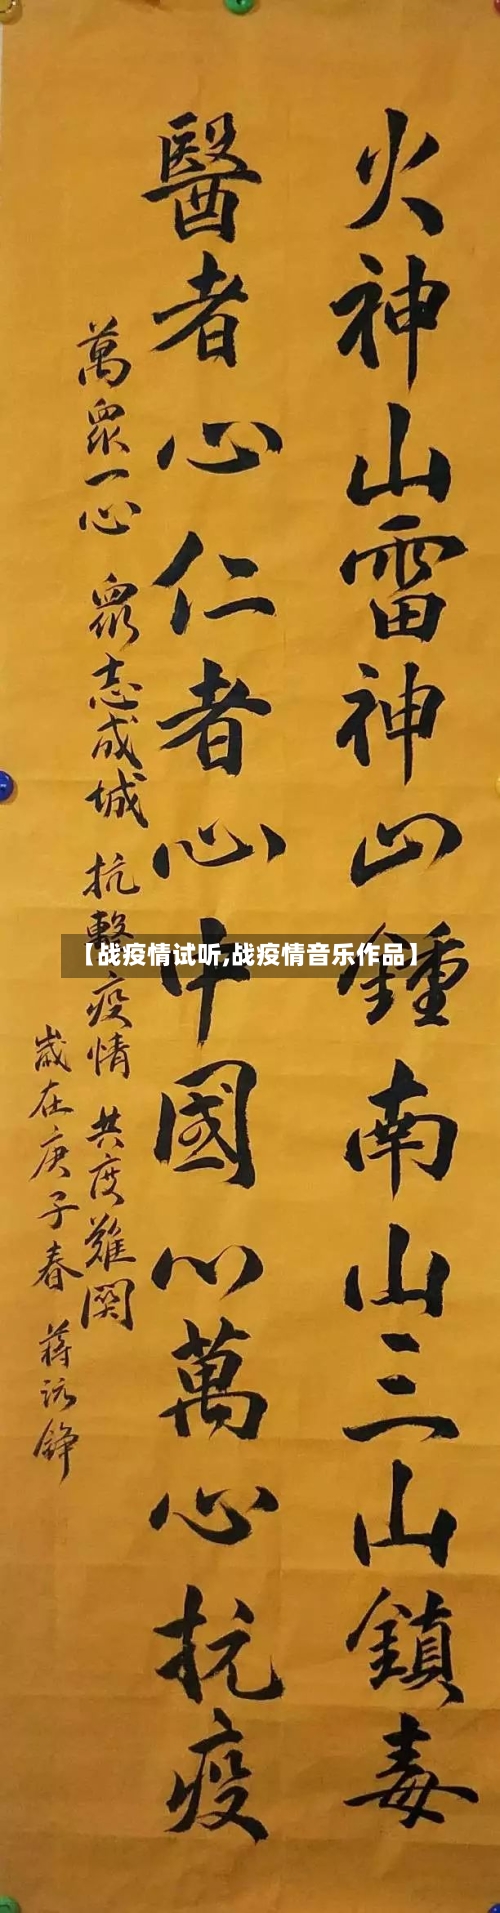 火神山雷神山鍾南山三山鎮毒
醫者心仁者心中國心萬心抗疫
萬眾一心 眾志成城 抗擊疫情 共度難関
歲在庚子春 蔣
【战疫情试听,战疫情音乐作品】